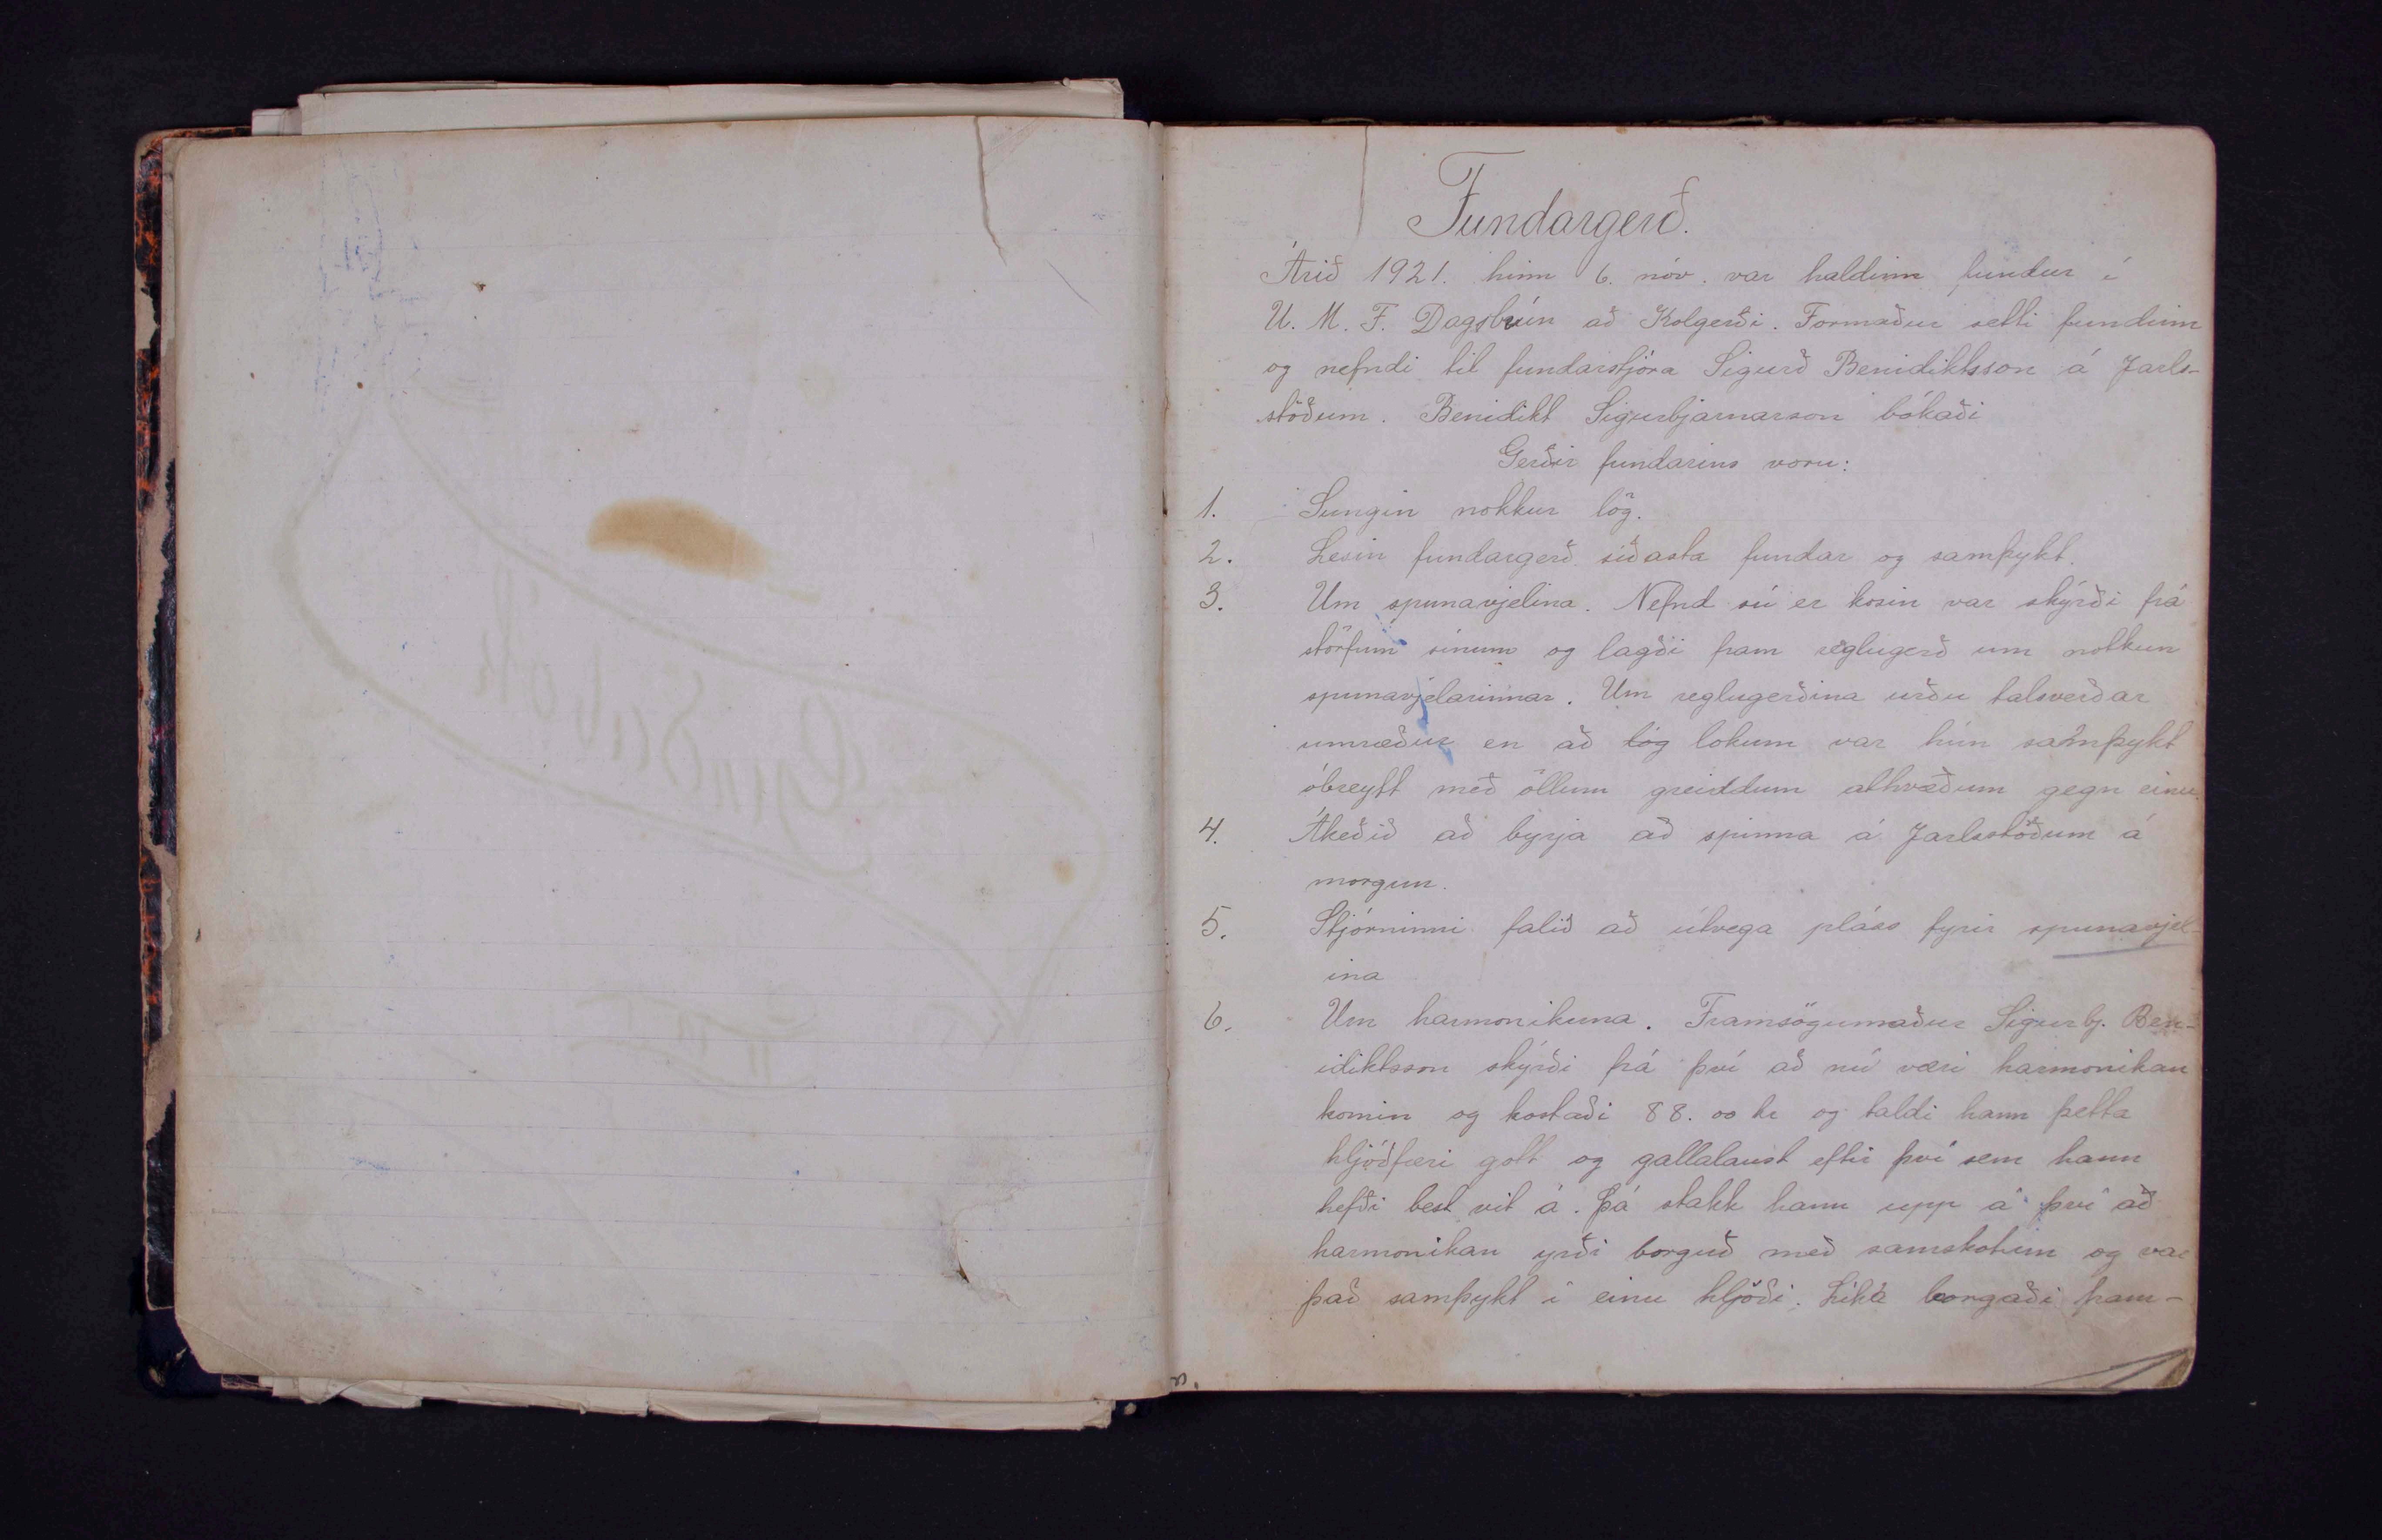 Fundargerð.
Árið 1921. hinn 6. nóv. var haldinn fundur í
U. M. F. Dagsbrún að Kolgerði. Formaður setti fundinn
og nefndi til fundarstjóra Sigurð Benidiktsson á Jarls-
stöðum. Benidikt Sigurbjarnarson bókaði
Gerðir fundarins voru:
1. Sungin nokkur lög.
2. Lesin fundargerð síðasta fundar og samþykt.
3. Um spunavjelina. Nefnd sú er kosin var skýrði frá
störfum sínum og lagði fram reglugerð um notkun
spunavjelarinnar. Um reglugerðina urðu talsverðar
umræður en að lóg lokum var hún samþykt
óbreytt með öllum greiddum athvæðum gegn einu
4. Ákeðið að byrja að spinna á Jarlsstöðum á
morgun.
5. Stjórninni falið að útvega pláss fyrir spunavjel-
ina
6. Um harmonikuna. Framsögumaður Sigurbj. Ben-
idiktsson skýrði frá því að nú væri harmonikan
komin og kostaði 88.00 kr og taldi hann þetta
hljóðfæri gott og gallalaust eftir því sem hann
hefði best vit á. Þá stakk hann upp á því að
harmonikan yrði borguð með samskotum og var
það samþykt í einu hljóði. Líka borgaði fram-